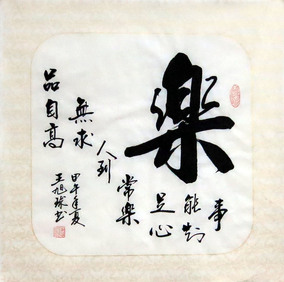 樂
事
能知
足心
常樂
人到
無求
品自高
甲午年夏